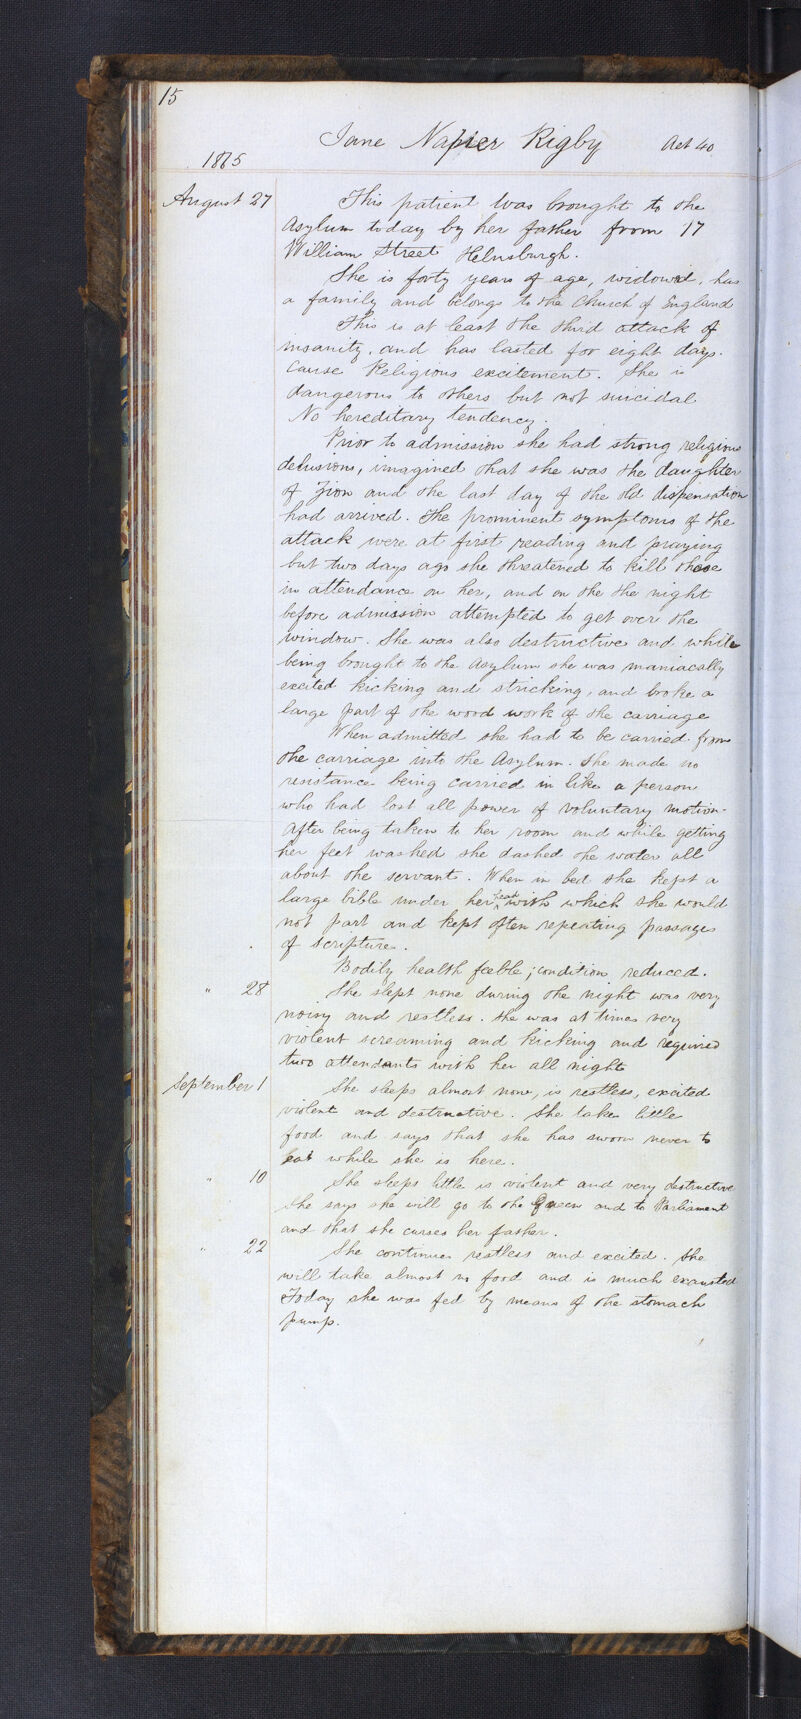 15
Jane Napier Rigby Aet 40
1865
August 27 This patient was brought to the
Asylum today by her father from 17
William Street Helnsburgh.
She is forty years of age, widowed, has
a family and belongs to the Church of England
This is at least the third attack of
insanity, and has lasted for eight days.
Cause Religious excitement. She is
dangerous to others but not suicidal
No hereditary tendency.
Prior to admission she had strong religious
delusions, imagined that she was the daughter
of Zion and the last day of the old dispensation
had arrived. The prominent symptoms of the
attack were at first reading and praying
but two days ago she threatened to kill those
in attendance on her, and on the the night
before admission attempted to get over the
window. She was also destructive and while
being brought to the Asylum she was maniacally
excited kicking and stricking, and broke a
large part of the wood work of the carriage
When admitted she had to be carried from
the carriage into the Asylum. She made no
resistance being carried in like a person
who had lost all power of voluntary motion.
After being taken to her room and while getting
her feet washed she dashed the water all
about the servant. When in bed she kept a
large bible under her head with which she would
not part and kept often repeating passages
of scripture.
Bodily health feeble; condition reduced.
" 28 She slept none during the night was very
noisy and restless. She was at times very
violent screaming and kicking and required
two attendants with her all night
September 1 She sleeps almost none, is restless, excited
violent and destructive. She takes little
food and says that she has sworn never to
eat while she is here.
" 10 She sleeps little is violent and very destructive
She says she will go to the Queen and to Parliament
and that she curses her father.
" 22 She continues restless and excited. She
will take almost no food and is much exausted
Today she was fed by means of the stomach
pump.